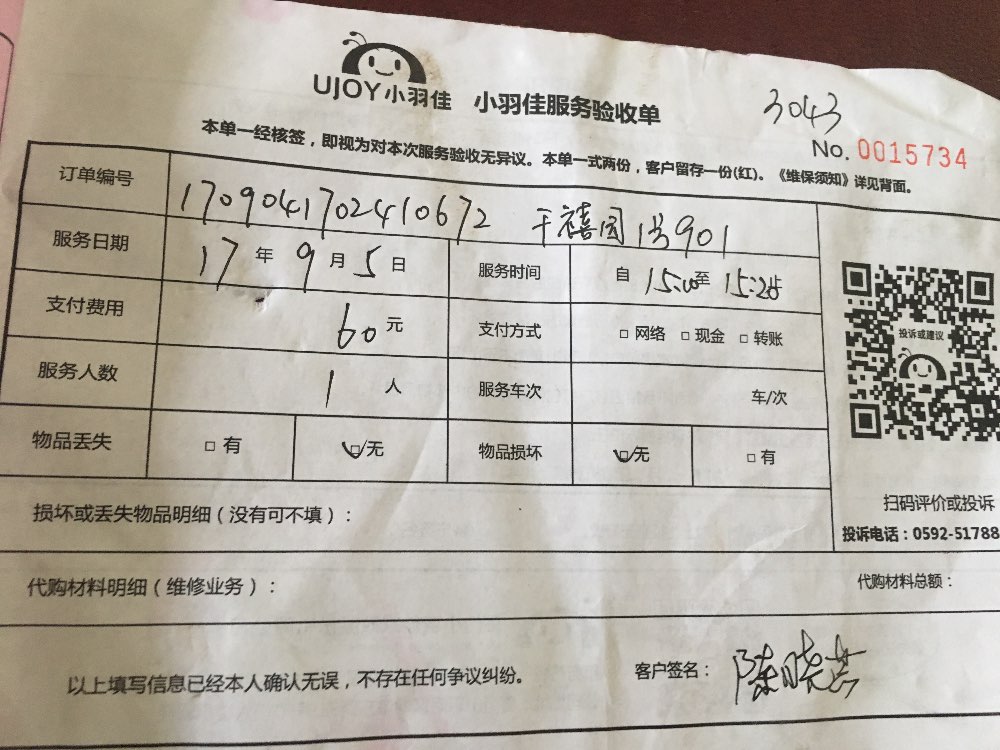 UJOY小羽佳 小羽佳服务验收单
3043
No. 0015734
本单一经核签，即视为对本次服务验收无异议。本单一式两份，客户留存一份(红)。《维保须知》详见背面。
订单编号 170904170241067 2 千禧园 901
服务日期 17 年 9 月 5 日 服务时间 自 15:00 至 15:25
支付费用 60 元 支付方式 □ 网络 □ 现金 □ 转账
投诉或建议
服务人数 1 人 服务车次 车/次
物品丢失 □ 有 □/无 物品损坏 □/无 □ 有
扫码评价或投诉
损坏或丢失物品明细（没有可不填）：
投诉电话：0592-51788
代购材料明细（维修业务）： 代购材料总额：
以上填写信息已经本人确认无误，不存在任何争议纠纷。 客户签名： 陈晓